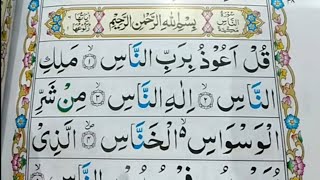 سُورَةُ النَّاسِ مَكِّيَّةٌ بِسْمِ اللهِ الرَّحْمٰنِ الرَّحِيْمِ
قُلْ اَعُوْذُ بِرَبِّ النَّاسِ ۙ﴿۱﴾ مَلِكِ
النَّاسِ ۙ﴿۲﴾ اِلٰهِ النَّاسِ ۙ﴿۳﴾ مِنْ شَرِّ
الْوَسْوَاسِ ۬ۙ الْخَنَّاسِ ۪ۙ﴿۴﴾ الَّذِیْ